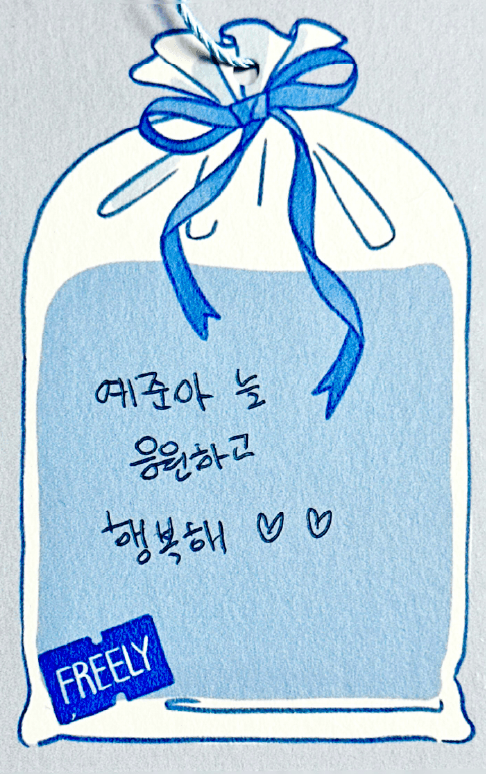 예준아 늘
응원하고
행복해 ♡ ♡
FREELY